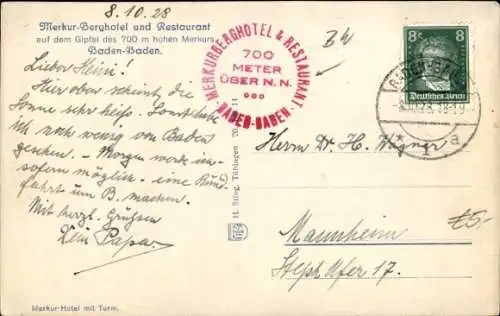 8.10.28
Merkur-Berghotel und Restaurant
auf dem Gipfel des 700 m hohen Merkurs
Baden-Baden.
Lieber Heini!
Hier oben scheint die
Sonne sehr heiß. Sonst habe
ich noch wenig von Baden
gesehen. – Morgen werde ich
sofern möglich – eine Rund-
fahrt um B. machen.
Mit herzl. Grüßen
Dein Papa
Merkur-Hotel mit Turm.
MERKURBERGHOTEL & RESTAURANT
700
METER
ÜBER N.N.
BADEN-BADEN
H. Sting, Tübingen
8 8
Deutsches Reich
a
Herrn Dr. H. Wagner
Mannheim
Steph. Ufer 17.
£5,-